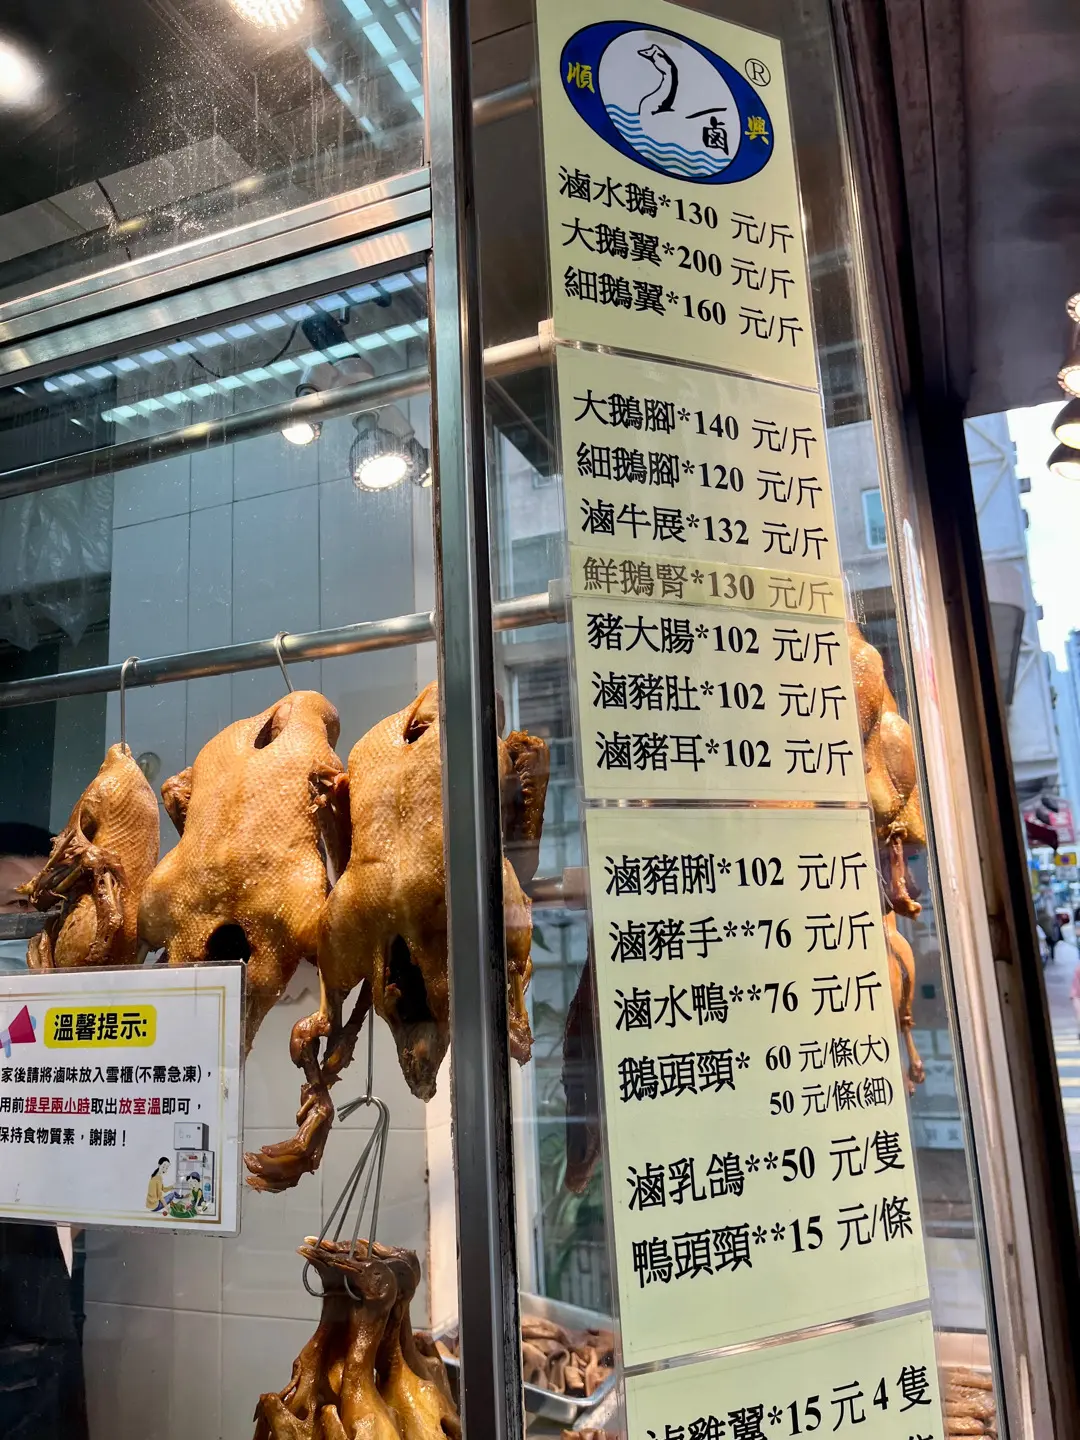 順
興
®
鹵
滷水鵝*130 元/斤
大鵝翼*200 元/斤
細鵝翼*160 元/斤
大鵝腳*140 元/斤
細鵝腳*120 元/斤
滷牛展*132 元/斤
鮮鵝腎*130 元/斤
豬大腸*102 元/斤
滷豬肚*102 元/斤
滷豬耳*102 元/斤
滷豬脷*102 元/斤
滷豬手**76 元/斤
滷水鴨**76 元/斤
鵝頭頸* 60 元/條(大)
50 元/條(細)
滷乳鴿**50 元/隻
鴨頭頸**15 元/條
滷雞翼*15元4隻
溫馨提示:
家後請將滷味放入雪櫃(不需急凍),
用前提早兩小時取出放室溫即可,
保持食物質素,謝謝!